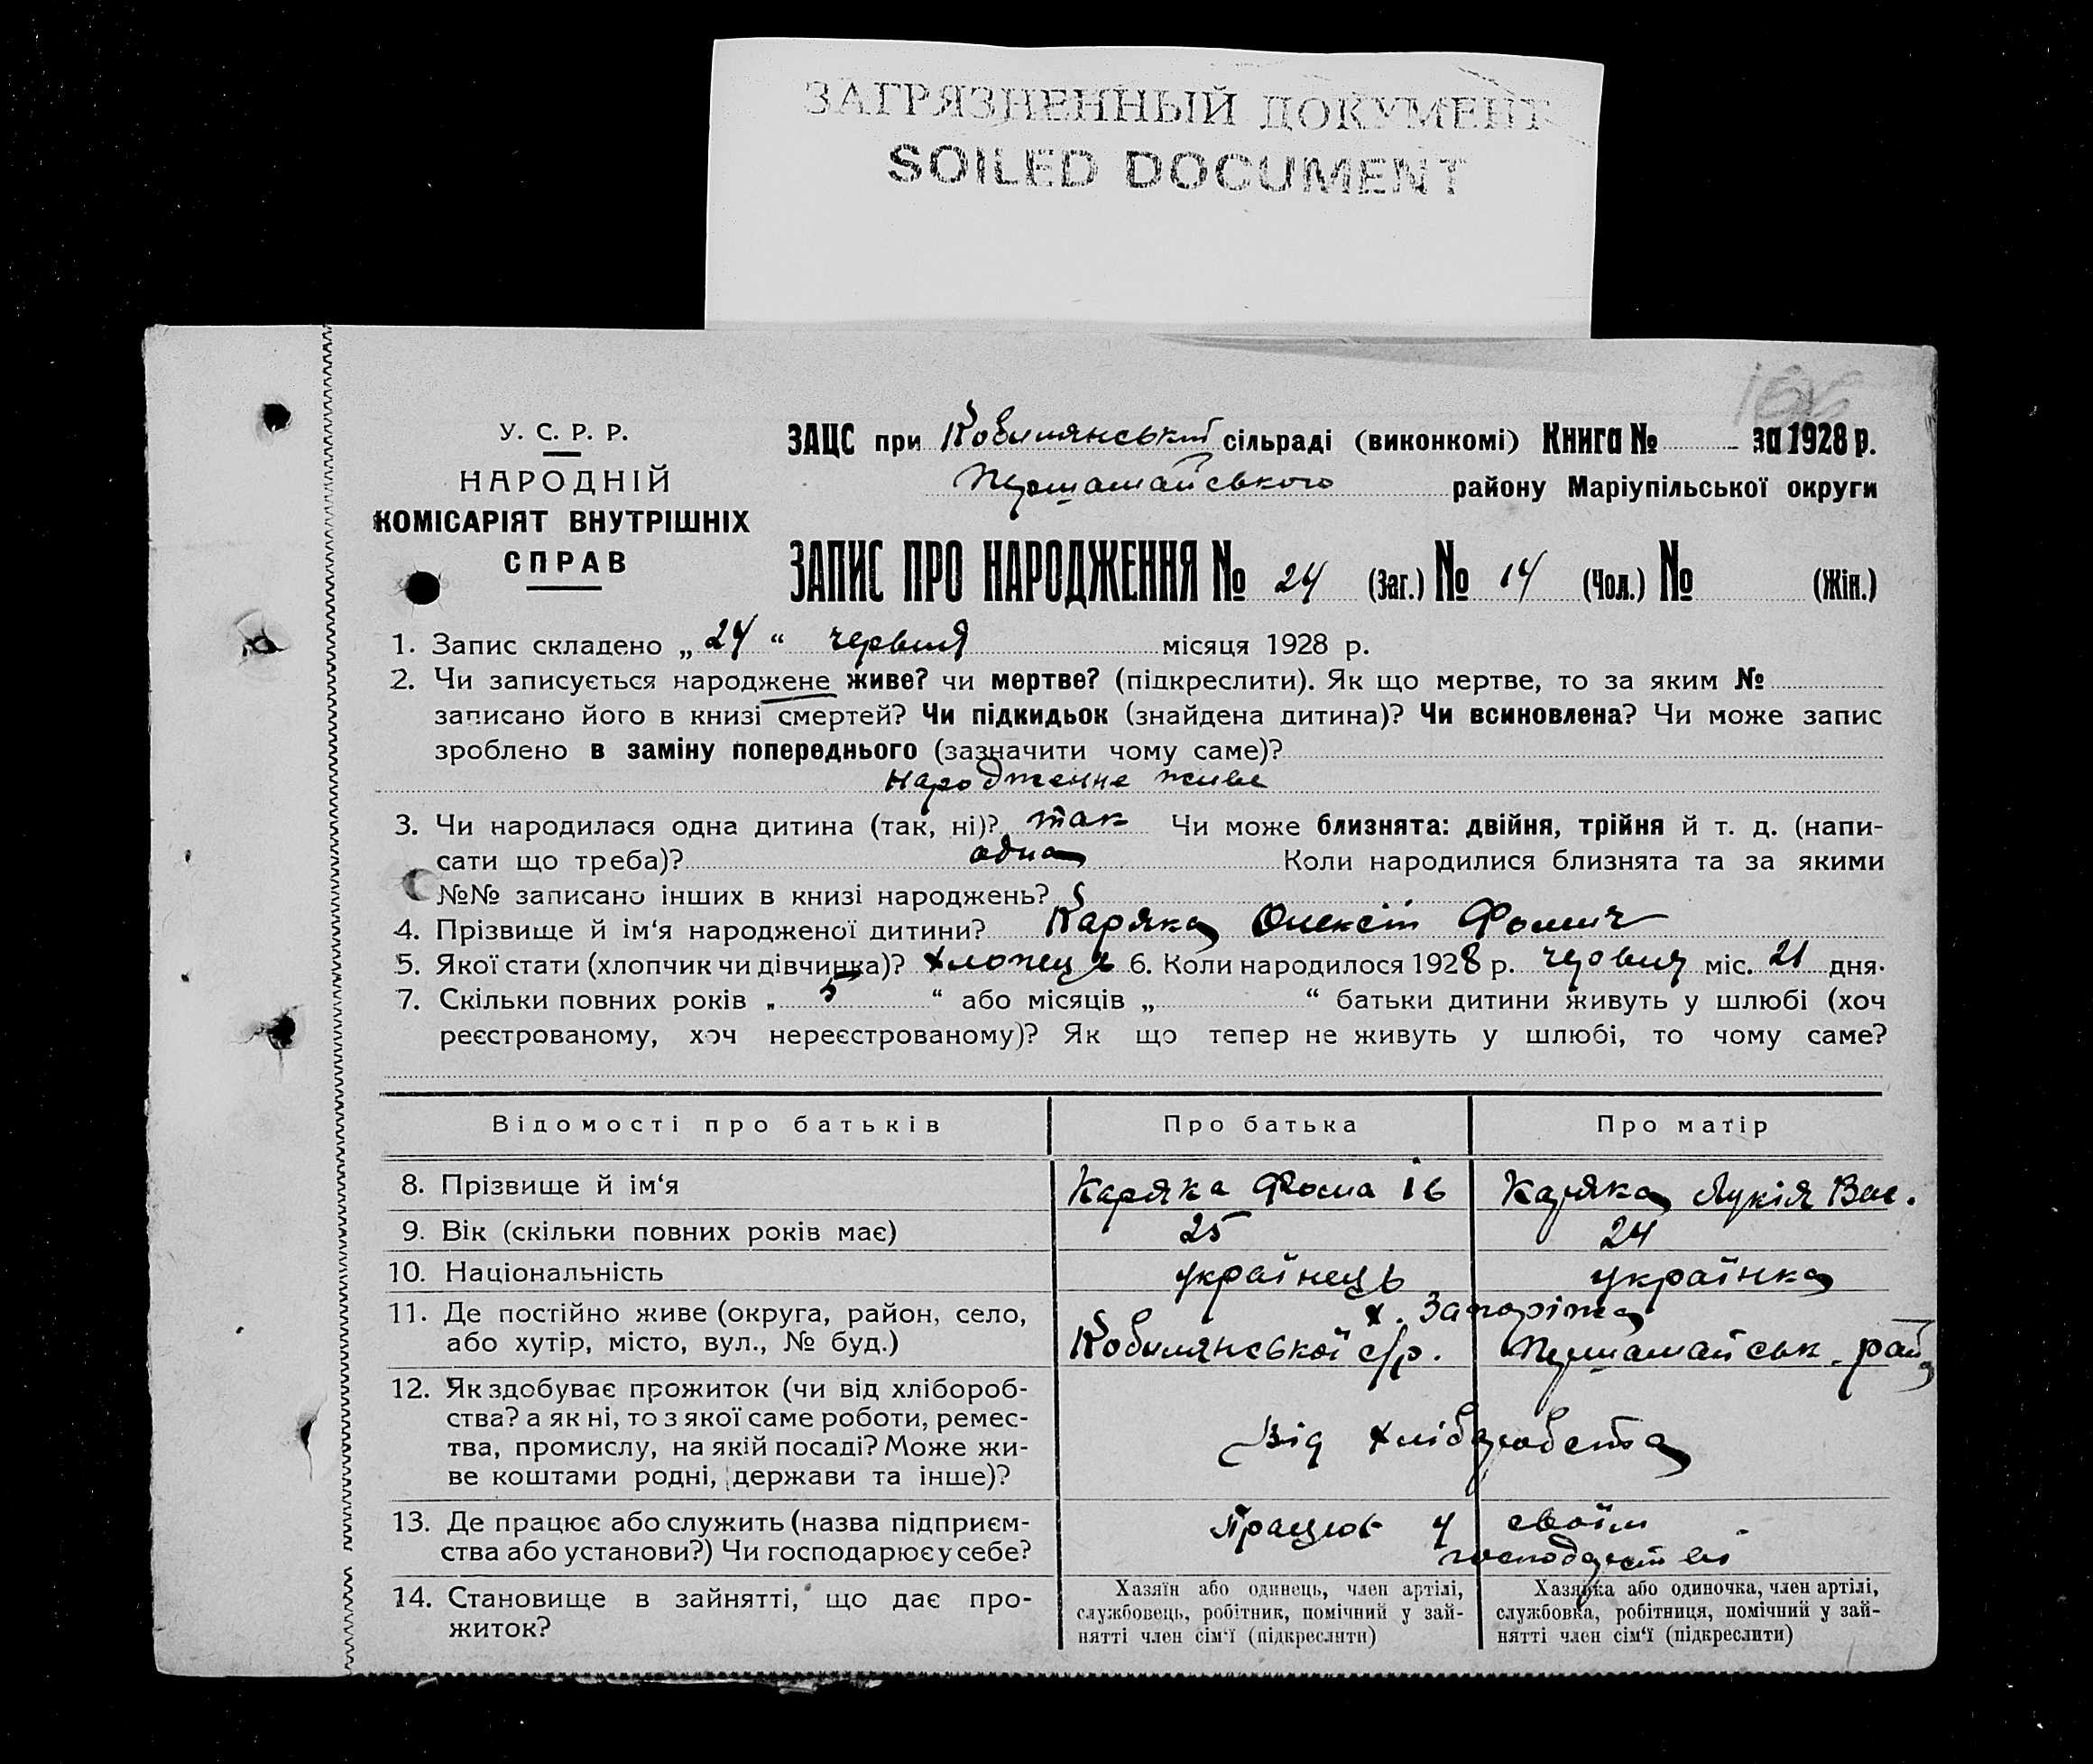 ЗАГРЯЗНЕННЫЙ ДОКУМЕНТ
SOILED DOCUMENT
166
У. С. Р. Р.
НАРОДНІЙ
КОМІСАРІЯТ ВНУТРІШНІХ
СПРАВ
ЗАЦС при Кобилянській сільраді (виконкомі) Книга № за 1928 р.
Першамайського району Маріупільської округи
ЗАПИС ПРО НАРОДЖЕННЯ № 24 (Заг.) № 14 (Чол.) № (Жін.)
1. Запис складено „ 24 “ червня місяця 1928 р.
2. Чи записується народжене живе? чи мертве? (підкреслити). Як що мертве, то за яким №
записано його в книзі смертей? Чи підкидьок (знайдена дитина)? Чи всиновлена? Чи може запис
зроблено в заміну попереднього (зазначити чому саме)?
Народженне живе
3. Чи народилася одна дитина (так, ні)? так Чи може близнята: двійня, трійня й т. д. (напи-
сати що треба)? одна Коли народилися близнята та за якими
№№ записано інших в книзі народжень?
4. Прізвище й ім‘я народженої дитини? Каряка Олексій Фомич
5. Якої стати (хлопчик чи дівчинка)? хлопець 6. Коли народилося 1928 р. червня міс. 21 дня.
7. Скільки повних років „ 5 “ або місяців „ “ батьки дитини живуть у шлюбі (хоч
реєстрованому, хоч нереєстрованому)? Як що тепер не живуть у шлюбі, то чому саме?
Відомості про батьків Про батька Про матір
8. Прізвище й ім‘я Каряка Фома Ів Каряка Лукія Вас.
9. Вік (скільки повних років має) 25 24
10. Національність українець українка
11. Де постійно живе (округа, район, село, х. Запоріжа
або хутір, місто, вул., № буд.) Кобилянської с/р. Першамайськ. рай
12. Як здобуває прожиток (чи від хлібороб-
ства? а як ні, то з якої саме роботи, ремес-
тва, промислу, на якій посаді? Може жи-
ве коштами родні, держави та інше)?
Від хліборобства
13. Де працює або служить (назва підприєм- Працює у своїм
ства або установи?) Чи господарює у себе? господарстві
14. Становище в зайнятті, що дає про-
житок?
Хазяїн або одинець, член артілі,
службовець, робітник, помічний у зай-
нятті член сім‘ї (підкреслити)
Хазярка або одиночка, член артілі,
службовка, робітниця, помічний у зай-
нятті член сім‘ї (підкреслити)